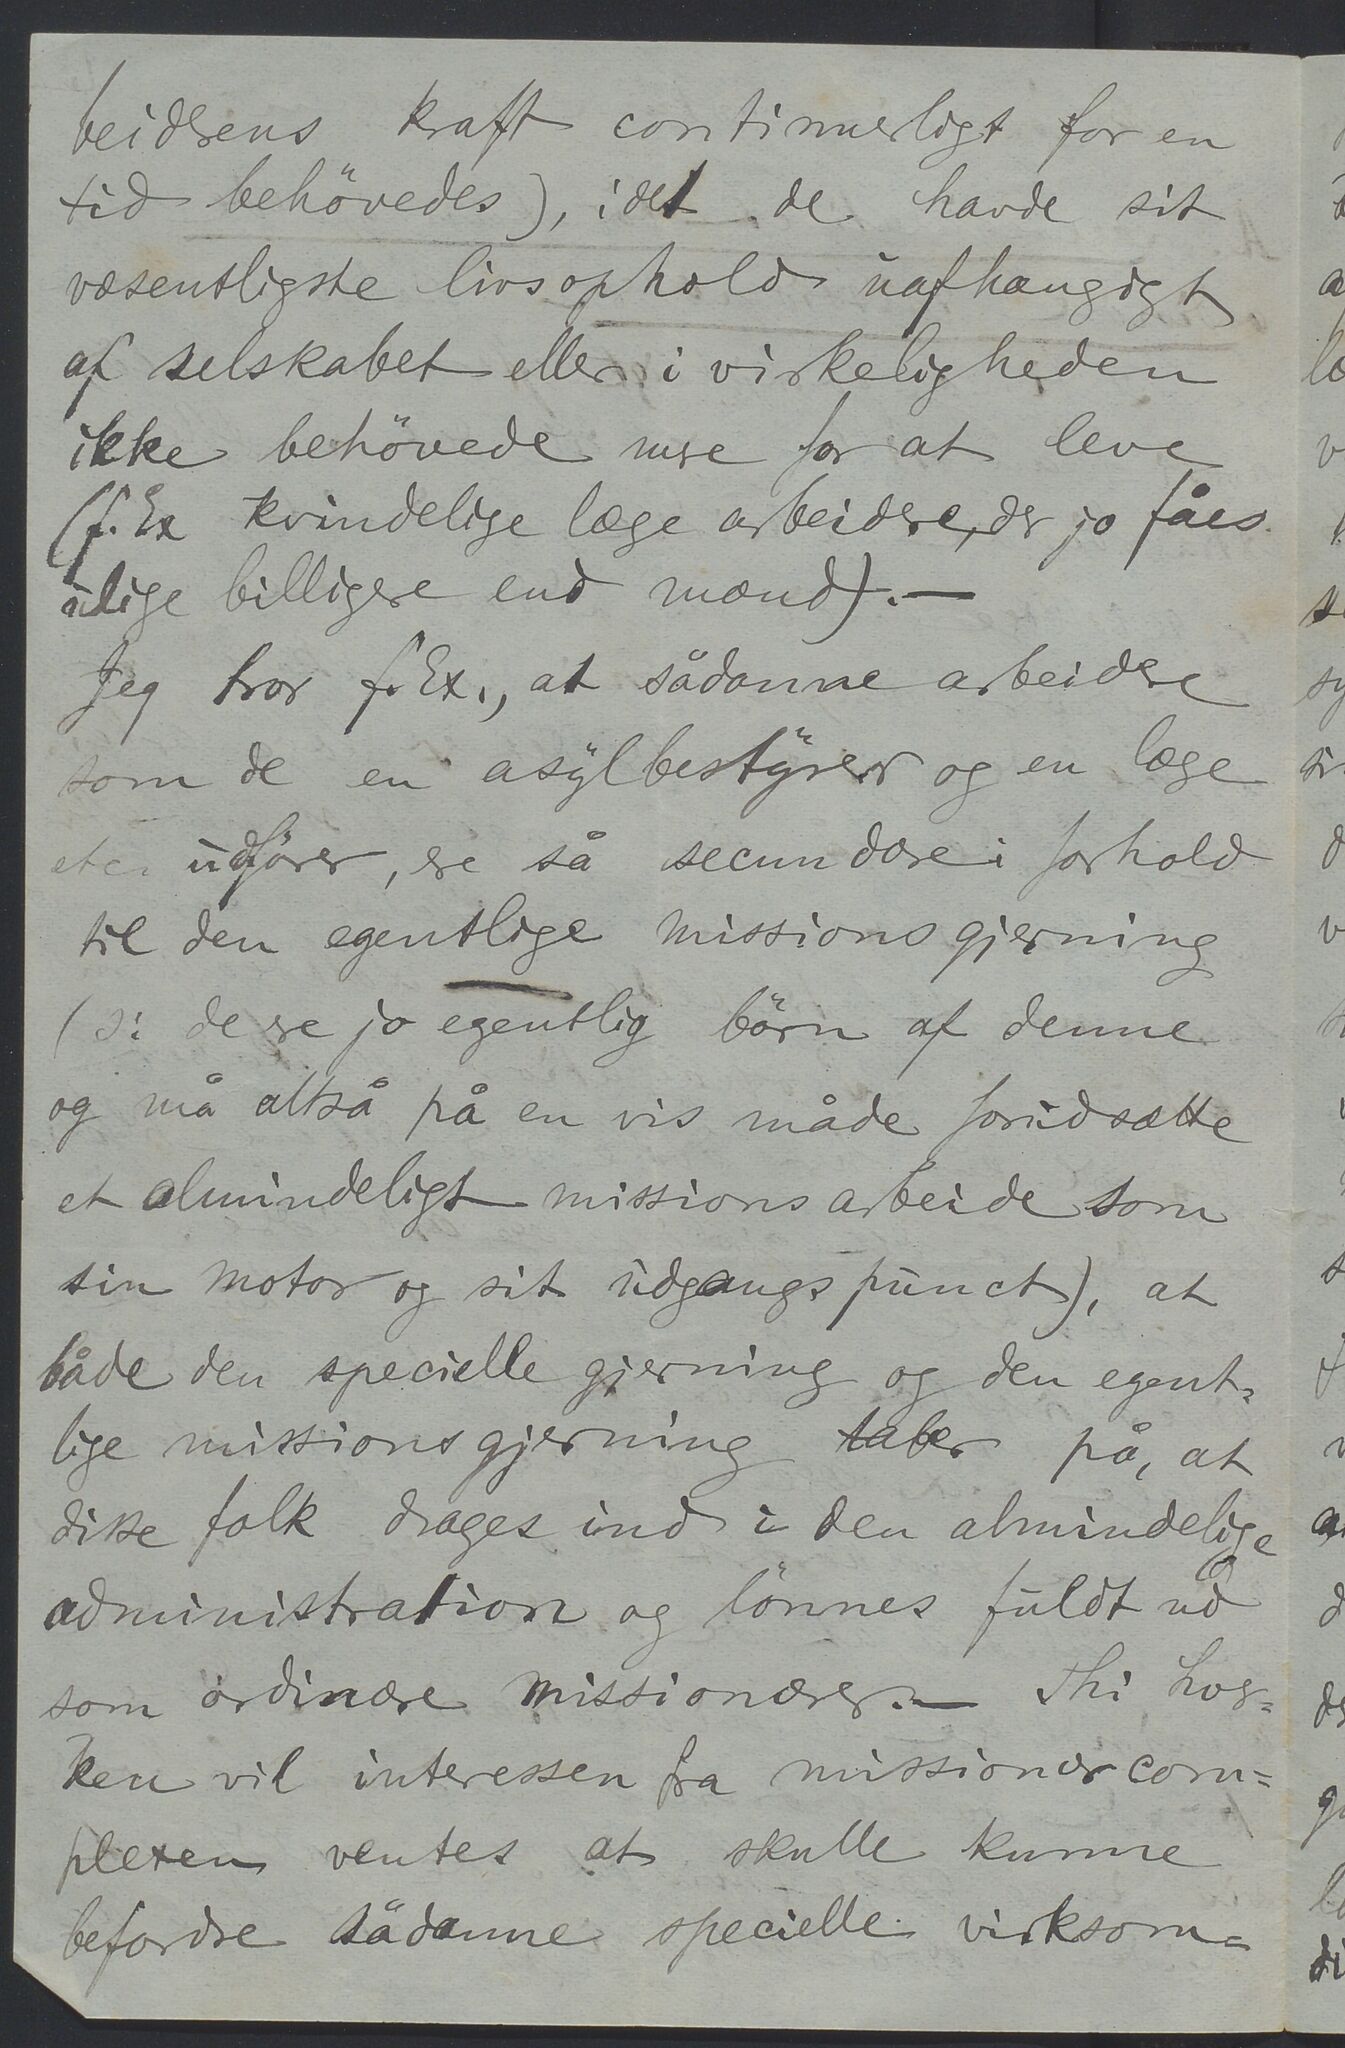 beiderens kraft continuerligt for en
tid behövedes), idet de havde sit
væsentligste livsophold uafhængigt
af selskabet eller i virkeligheden
ikke behövede mere for at leve
(f. Ex kvindelige læge arbeidere, der jo fåes
ulige billigere end mænd). —
Jeg tror f. Ex., at sådanne arbeidere
som de en asylbestyrer og en læge
etc. udförer, ere så secundære i forhold
til den egentlige missionsgjerning
(ɔ: de ere jo egentlig börn af denne
og må altså på en vis måde forudsætte
et almindeligt missionsarbeide som
sin motor og sit udgangspunct), at
både den specielle gjerning og den egent=
lige missionsgjerning taber på, at
disse folk drages ind i den almindelige
administration og lönnes fuldt ud
som ordinære missionærer. — Thi hver=
ken vil interessen fra missionærcom=
plexen ventes at skulle kunne
befordre sådanne specielle virksom=